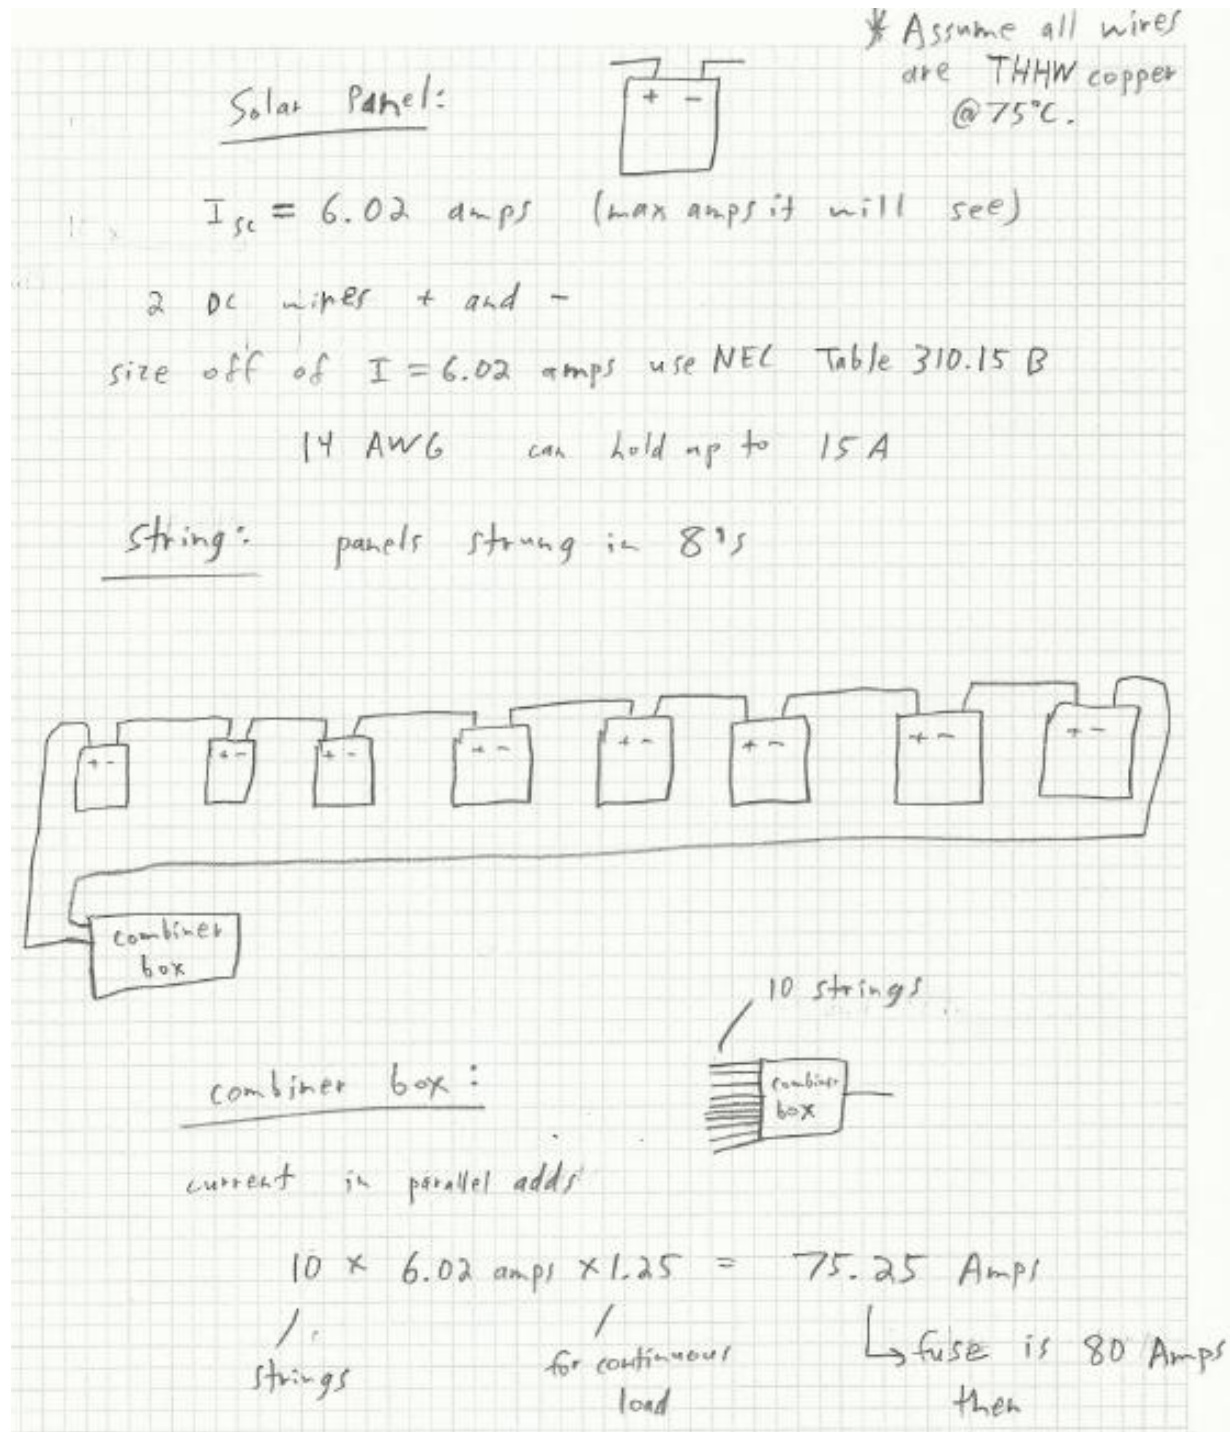 * Assume all wires
are THHW copper
@ 75°C.
Solar Panel:
+ -
Isc = 6.02 amps (max amps it will see)
2 DC wires + and -
size off of I = 6.02 amps use NEC Table 310.15 B
14 AWG can hold up to 15 A
String: panels strung in 8's
+ - + - + - + - + - + - + - + -
combiner
box
10 strings
combiner box:
combiner
box
current in parallel adds
10 x 6.02 amps x 1.25 = 75.25 Amps
strings
for continuous
load
↳ fuse is 80 Amps
then